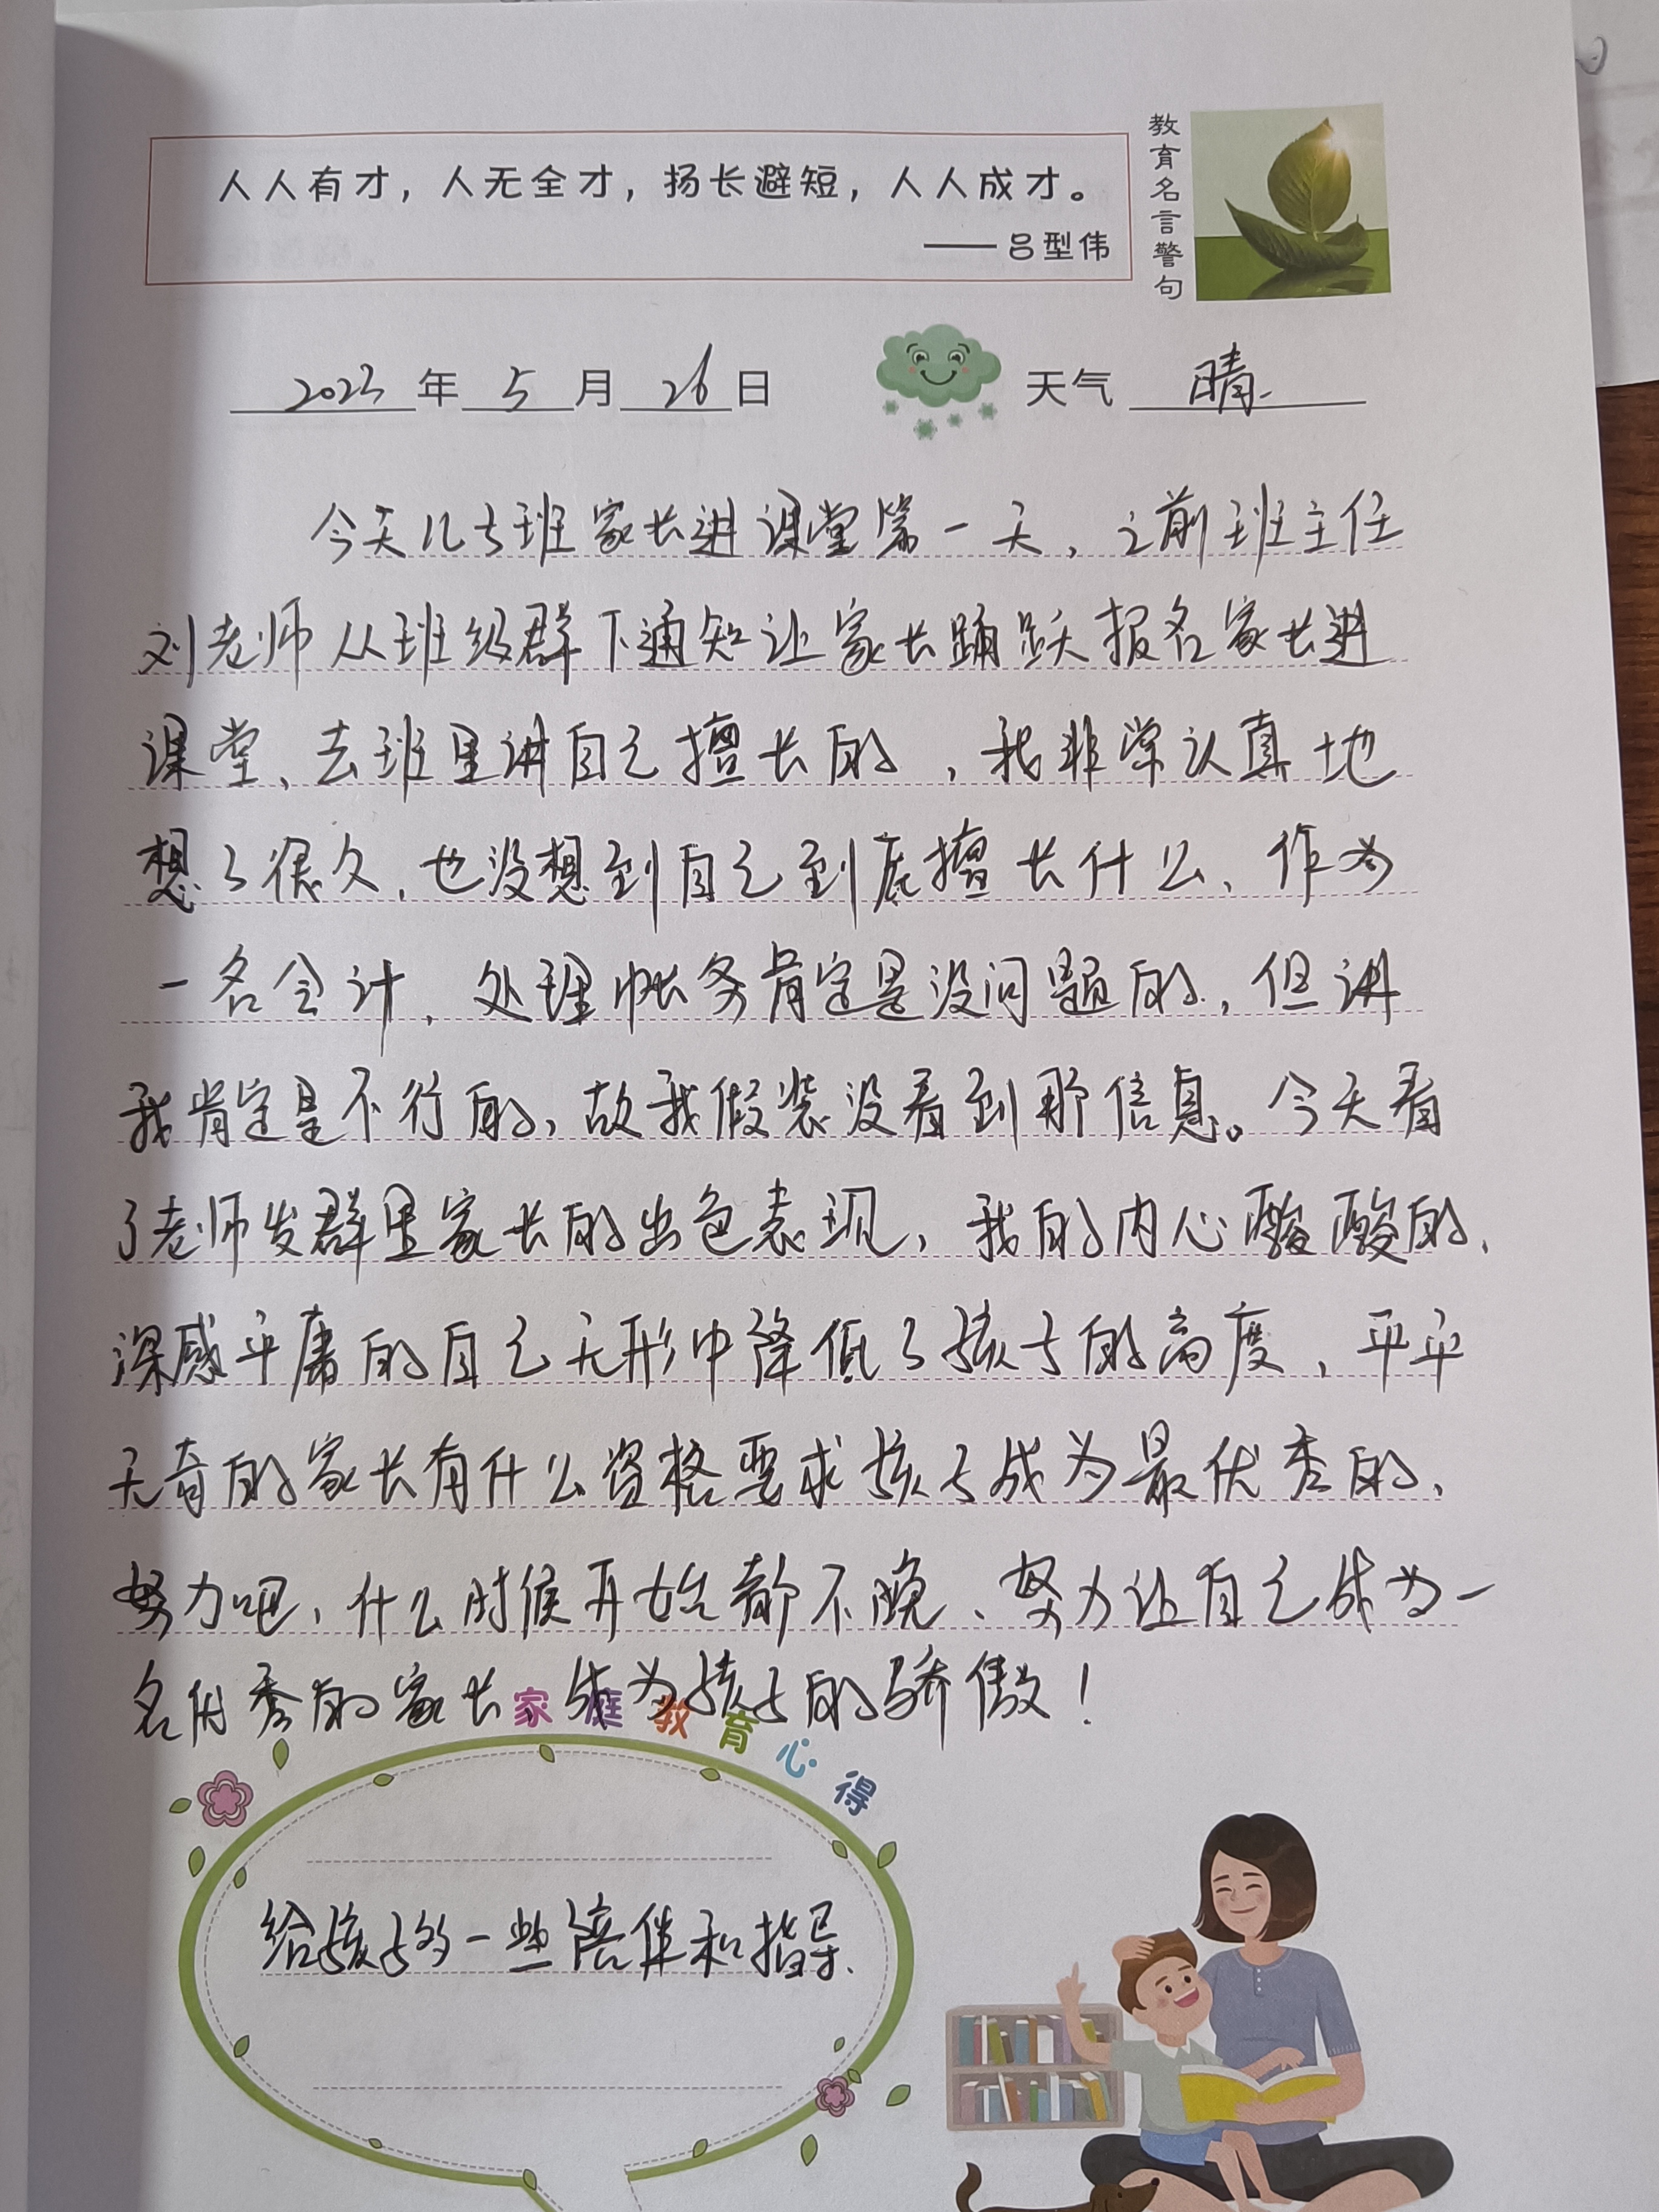 人人有才，人无全才，扬长避短，人人成才。
——吕型伟
教育名言警句
2023年5月26日 天气 晴
今天儿子班家长进课堂第一天，之前班主任
刘老师从班级群下通知让家长踊跃报名家长进
课堂、去班里讲自己擅长的，我非常认真地
想了很久，也没想到自己到底擅长什么、作为
一名会计，处理帐务肯定是没问题的，但讲
我肯定是不行的，故我假装没看到那信息。今天看
了老师发群里家长的出色表现，我的内心酸酸的、
深感平庸的自己无形中降低了孩子的高度，平平
无奇的家长有什么资格要求孩子成为最优秀的、
努力吧，什么时候开始都不晚、努力让自己成为一
名优秀的家长，成为孩子的骄傲！
家庭教育心得
给孩子多一些陪伴和指导.